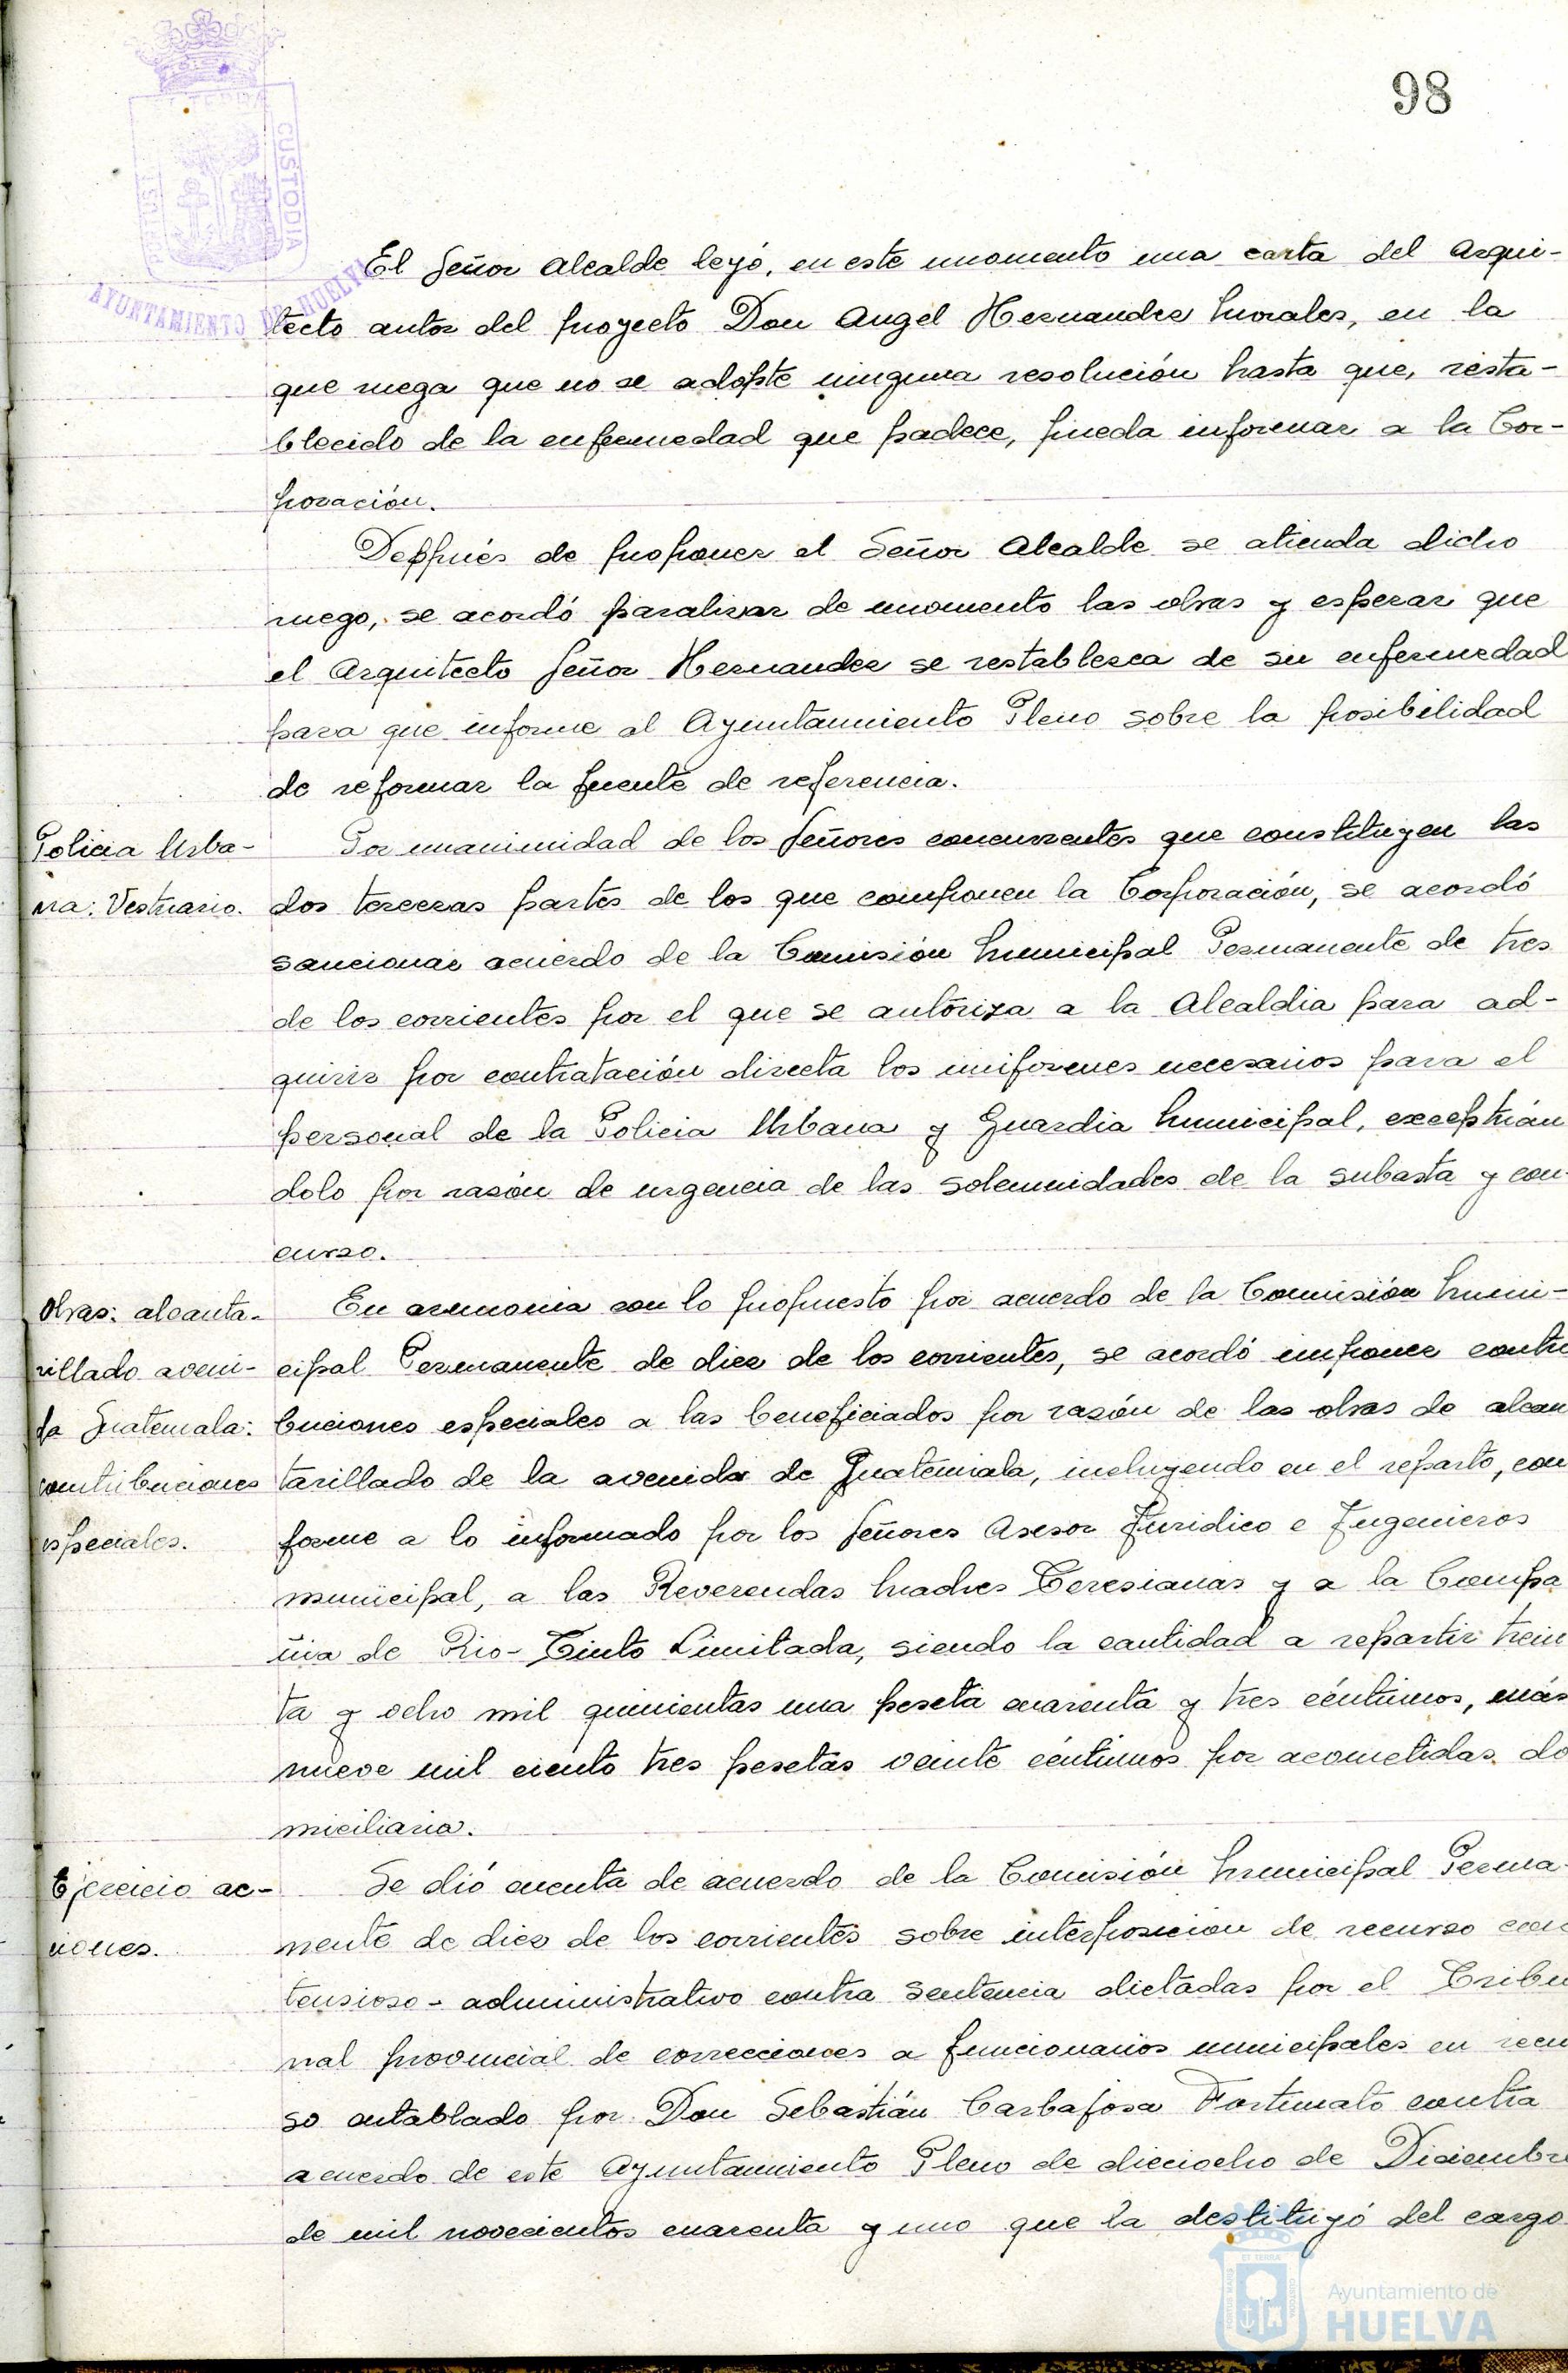 98
PORTUS MARIS ET TERRE CUSTODIA
AYUNTAMIENTO DE HUELVA
El Señor Alcalde leyó, en este momento una carta del Arqui-
tecto autor del proyecto Don Angel Hernandez Morales, en la
que ruega que no se adopte ninguna resolución hasta que, resta-
blecido de la enfermedad que padece, pueda informar a la Cor-
poración.
Después de proponer el Señor Alcalde se atienda dicho
ruego, se acordó paralizar de momento las obras y esperar que
el Arquitecto Señor Hernandez se restablezca de su enfermedad
para que informe al Ayuntamiento Pleno sobre la posibilidad
de reformar la fuente de referencia.
Policia Urba-
na: Vestuario.
Por unanimidad de los Señores concurrentes que constituyen las
dos terceras partes de los que componen la Corporación, se acordó
sancionar acuerdo de la Comisión Municipal Permanente de tres
de los corrientes por el que se autoriza a la Alcaldia para ad-
quirir por contratación directa los uniformes necesarios para el
personal de la Policia Urbana y Guardia Municipal, exceptuán
dolo por razón de urgencia de las solemnidades de la subasta y con-
curso.
Obras: alcanta-
rillado aveni-
da Guatemala:
contribuciones
especiales.
En armonia con lo propuesto por acuerdo de la Comisión Muni-
cipal Permanente de diez de los corrientes, se acordó imponer contri
buciones especiales a las beneficiados por razón de las obras de alcan
tarillado de la avenida de Guatemala, incluyendo en el reparto, con
forme a lo informado por los Señores Asesor Juridico e Ingenieros
municipal, a las Reverendas Madres Teresianas y a la Compa
ñia de Rio-Tinto Limitada, siendo la cantidad a repartir trein
ta y ocho mil quinientas una peseta cuarenta y tres céntimos, más
nueve mil ciento tres pesetas veinte céntimos por acometidas do
miciliaria.
Ejercicio ac-
ciones.
Se dió cuenta de acuerdo de la Comisión Municipal Perma-
nente de diez de los corrientes sobre interposicion de recurso con
tensioso-administrativo contra sentencia dictadas por el Tribu
nal provincial de correcciones a funcionarios municipales en recu
so entablado por Don Sebastián Carbajosa Fortunato contra
acuerdo de este Ayuntamiento Pleno de dieciocho de Diciembre
de mil novecientos cuarenta y uno que la destituyó del cargo
Ayuntamiento de
HUELVA